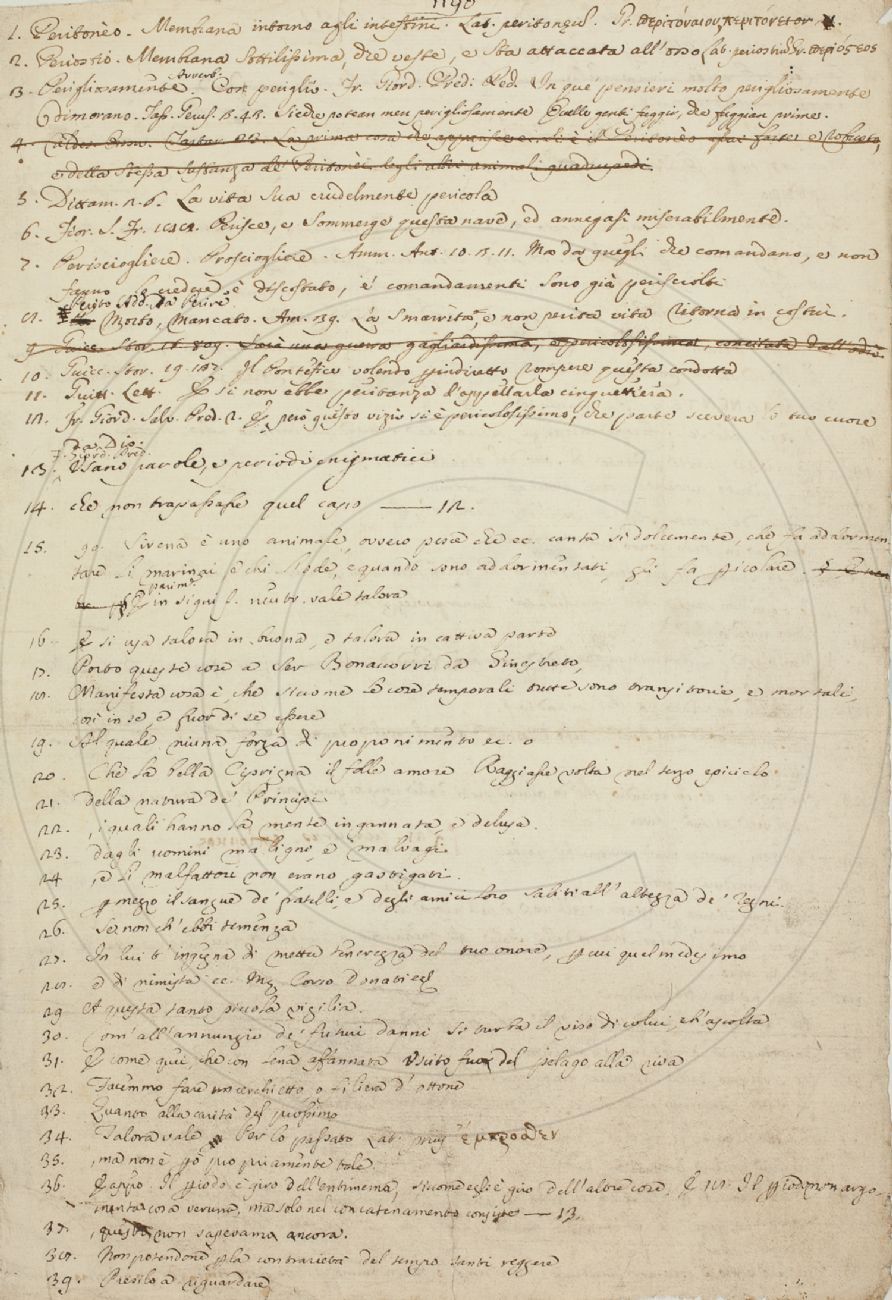 1190
1. Peritonèo. Membrana intorno agli intestini. Lat. peritonęũ. Gr. περιτόναιον περιτόνετον.
2. Periostio. Membrana Sottilissima, che veste, e sta attaccata all'osso Lat. periostiũ Gr. περιόςεος
Avverb.
3. Perigliosamente. Con periglio. Fr. Giord. Pred: Red. In que' pensieri molto perigliosamente
Dimorano. Tass. Gerus. Siede potean men perigliosamente Quelle genti fuggir, che fuggian prime.
4. La prima cosa che
e della stessa sostanza de' Peritonèi degli altri animali quadrupedi.
5. Dittam. 2. 6. La vita sua crudelmente pericola
6. Fior. S. Fr. Perisce, e Sommerge questa nave, ed annegasi miserabilmente.
7. Perisciogliere. Prosciogliere. Amm. Ant. 10. 2. 11. Ma da quegli che comandano, e non
fanno, è discostato, i comandamenti sono già perisciolti
Perito Add. da Perire.
8. Morto, Mancato. Am. 29. La smarrita, e non perita vita ritorna in costui.
9. Guicc. Stor. Saria una guerra gagliardissima, e pericolosissima, concitata dall'odio
10. Guicc. Stor. 19. Il Pontefice volendo pindiretto rompere questa condotta
11. Guitt. Lett. E si non ebbe peritanza d'appellarla cinguettiera.
12. Fr. Giord. Salv. Pred. 2. E però questo vizio si è pericolosissimo, che parte scevera lo tuo cuore
da Dio.
F. Giord. Pred.
13. Usano parole, e periodi enigmatici
14. che non trapassasse quel capo —— 12.
15. 99. Sirena è uno animale, ovvero pesce che ec. canta sì dolcemente, che fa addormen-
tare li marinai e chi l'ode, e quando sono addormentati, gli fa pericolare.
parim.
E in signif. neutr. vale talora
16. E si usa talora in buona, e talora in cattiva parte
17. Porto queste cose a Ser Bonaccorri da Ginestreto,
18. Manifesta cosa è, che siccome le cose temporali tutte sono transitorie, e mortali,
così in se, e fuor di se essere
19. Al quale niuna forza di proponimento ec. o
20. Che la bella Ciprigna il folle amore Raggiasse volta nel terzo epiciclo
21. della natura de' Principi
22. , i quali hanno la mente ingannata, e delusa.
23. dagli uomini maligni, e malvagi.
24 , e li malfattori non erano gastigati.
25. p mezzo il sangue de' fratelli, e degli amici loro saliti all'altezza de' regni.
26. Se non ch'ebbi temenza
27. In lui t'ingegna di metter tenerezza del tuo onore, p cui quel medesimo
28. e di nimistà ec. Mess. Corso Donati ec.
29 A questa tanto piccola vigilia.
30. Com' all'annunzio de' futuri danni Si turba il viso di colui, ch'ascolta
31. E come quei, che con lena affannata Uscito fuor del pelago alla riva
32. Facemmo fare un cerchietto, o filiera d'ottone
33. Quanto alla carità del prossimo
34. Talora vale Per lo passato Lat. prius ἔμπροσθεν
35. , ma non è pò propriamente tale.
36. E appo. Il piodo è giro dell'entimema, siccome egli è giro dell'altre cose. E 18. Il piodo non argo-
menta cosa veruna, ma solo nel concatenamento consiste — 13.
37. , questo non sapevamo ancora.
38. Non potendone pla contrarietà del tempo Santi reggere
39. Presilo a riguardare